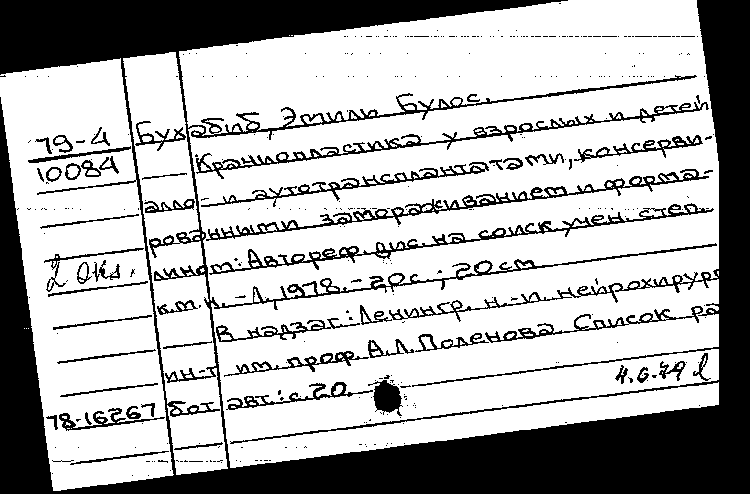 79-4
10084
2 экз.
78-16267
Бухабиб, Эмили Булос.
Краниопластика у взрослых и детей
алло- и аутотрансплантатами, консерви-
рованными замораживанием и форма-
лином: Автореф. дис. на соиск. учен. степ.
к.м.н. - Л., 1978. - 20 с.; 20 см
В надзаг.: Ленингр. н.-и. нейрохирург
ин-т им. проф. А.Л. Поленова. Список ра
бот авт.: с. 20.
4.6.79